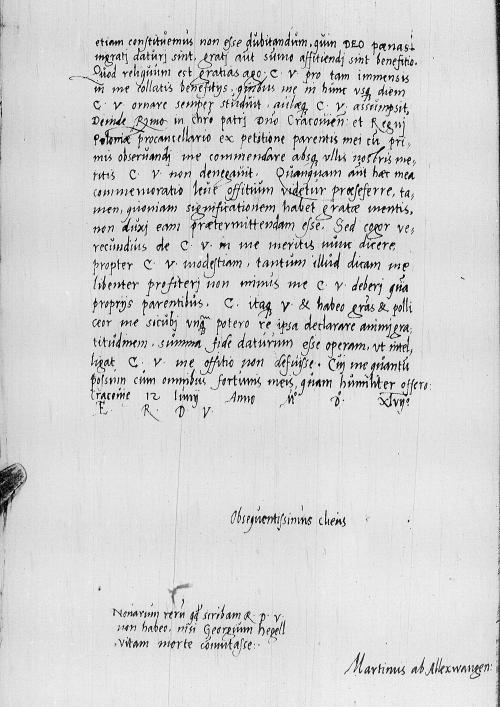 etiam constituemus non esse dubitandum, quin DEO pænas
ingratj daturj sint, gratj aut summo affitiendj sint benefitio.
Quod reliquum est gratias ago C. V. pro tam immensis
in me collatis benefitys, quibus me in hunc usq diem
C. V. ornare semper studuit, aulæq C. V. asscripsit,
Deinde Rmo in chro patrj Dno Cracouien: et Regnj
Poloniæ procancellario ex petitione parentis mei cu pri-
mis obseruandj me commendare absq ullis nostris me-
ritis C. V. non denegauit. Quanquam aut hæc mea
commemoratio leue offitium videtur præseferre, ta-
men, quoniam significationem habet gratæ mentis,
non duxj eam prætermittendam esse. Sed cogor ve-
recundius de C. V. in me meritis nunc dicere
propter C. V. modestiam, tantum illud dicam me
libenter profiterj non minus me C. V. deberj qua
proprijs parentibus. C. itaq V. & habeo gras & polli
ceor me sicubj unq potero re ipsa declarare animj gra
titudinem, summa fide daturum esse operam, ut intel-
ligat C. V. me offitio non defuisse. Cuj me quantu
possum cum omnibus fortunis meis, quam humiliter offero:
Cracouie 12 Iunij Anno Mo Do. xlvijo
E. R. D. V.
Obsequentissimus cliens
Nouarum reru qd scribam R. p. v.
non habeo, nisi Georgium hegell
vitam morte comutasse:
Martinus ab Allexwangen: